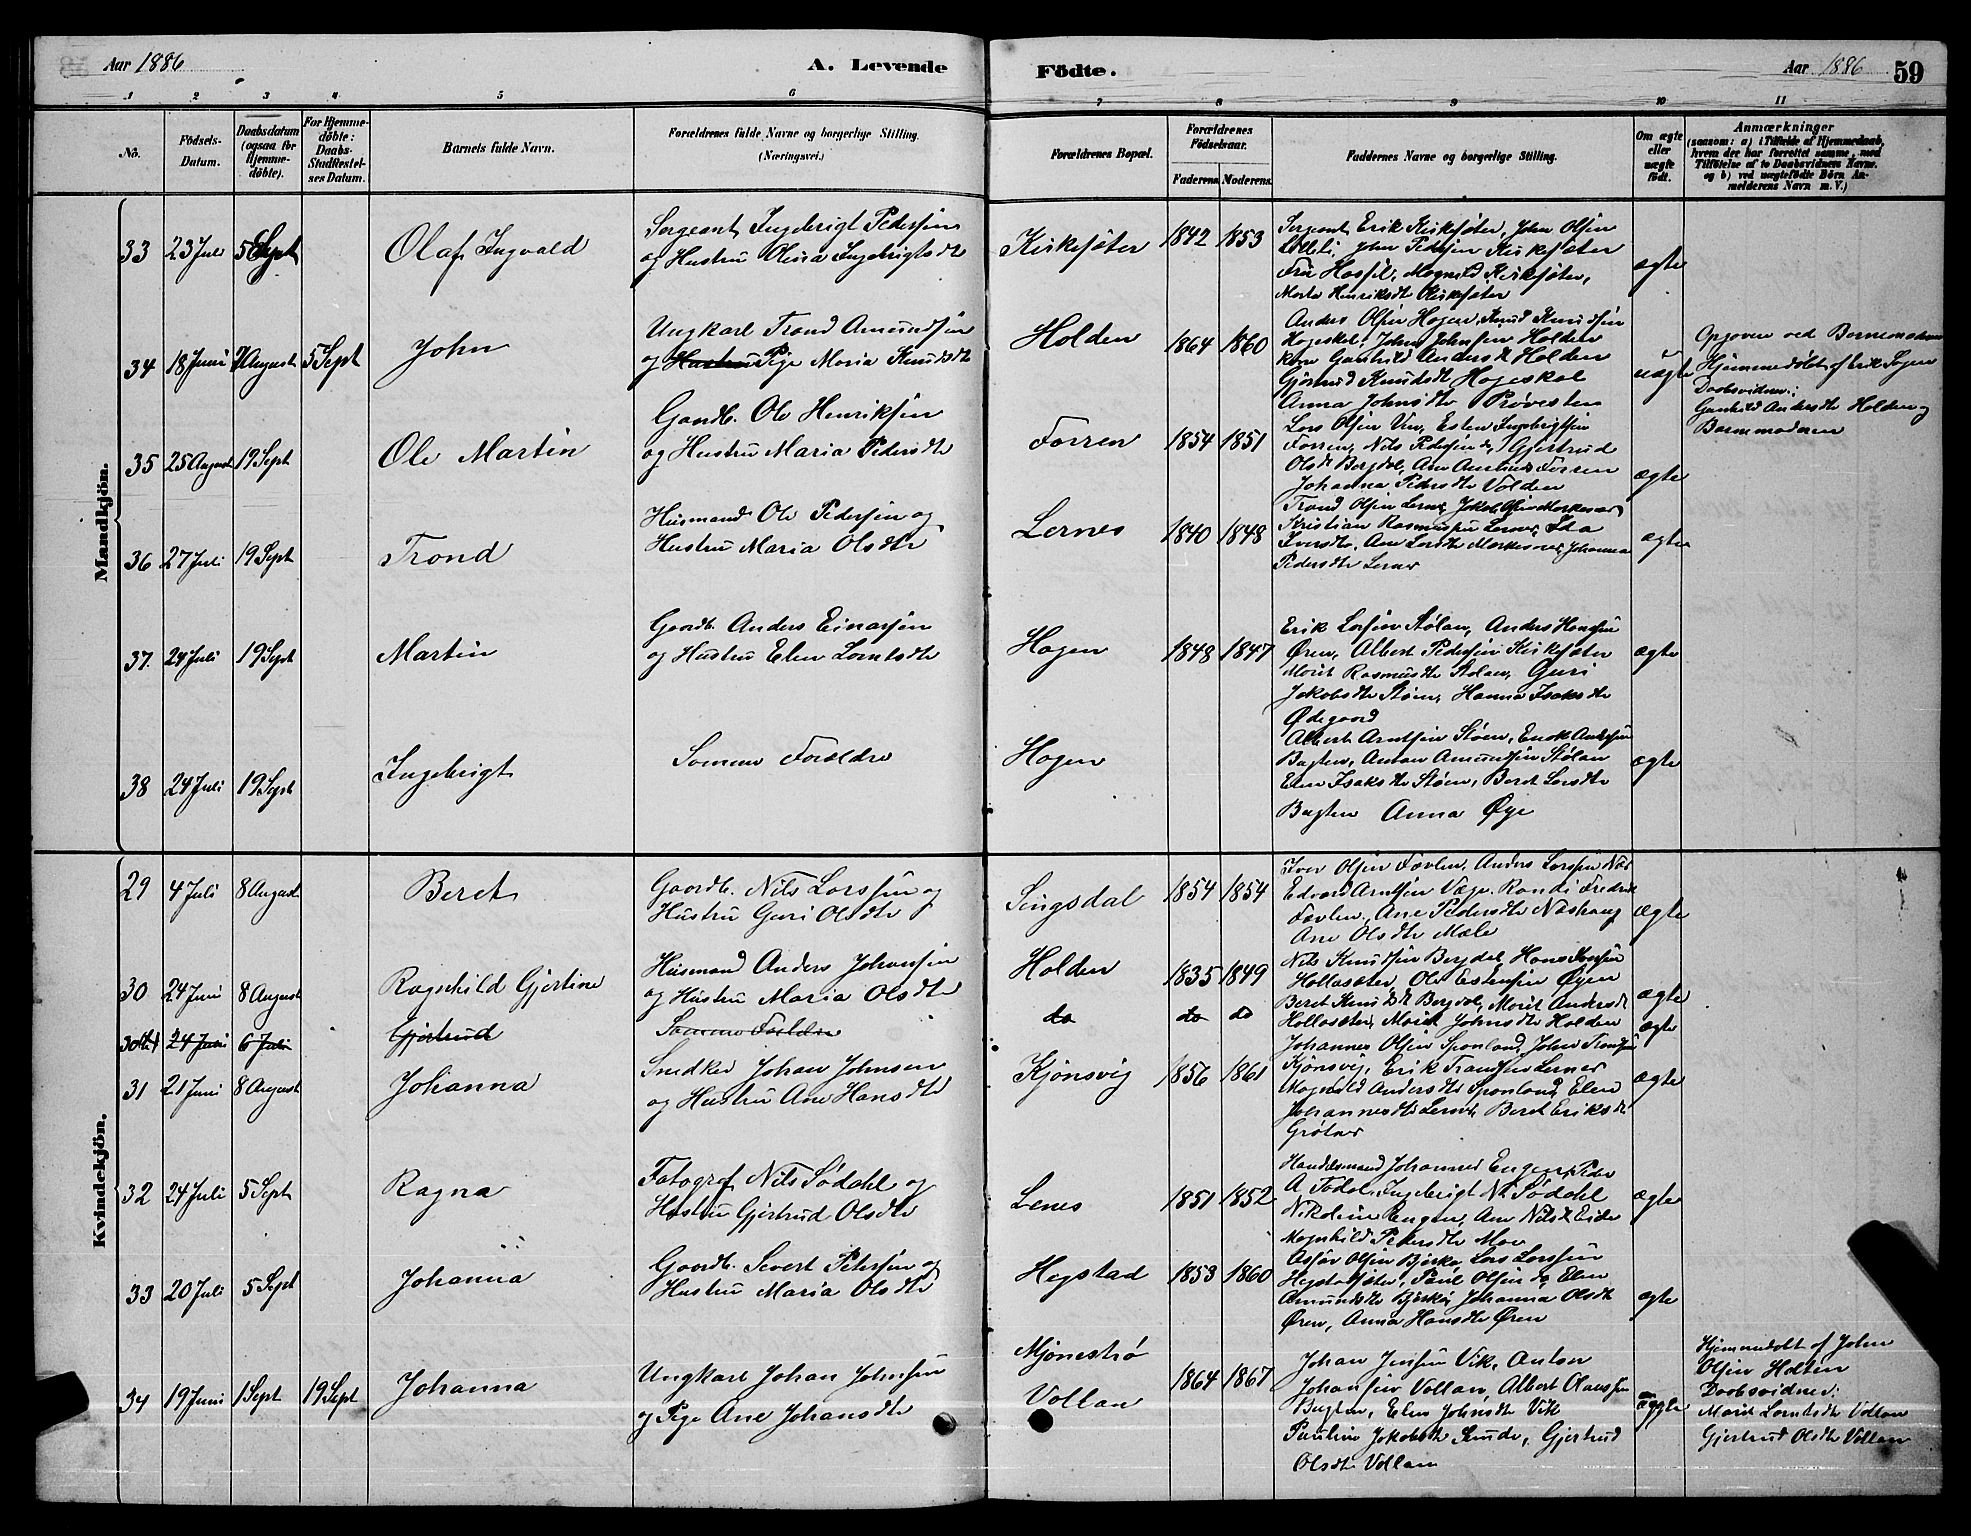 Aar 1886
A. Levende
Födte.
Aar 1886
59
1 2 3 4 5 6 7 8 9 10 11
No.
Födsels-
Datum.
Daabsdatum
(ogsaa for
Hjemme-
döbte).
For Hjemme-
döbte:
Daabs-
Stadfestel-
ses Datum.
Barnets fulde Navn.
Forældrenes fulde Navne og borgerlige Stilling.
(Næringsvei.)
Forældrenes Bopæl.
Forældrenes
Födselsaar.
Faderens. Moderens.
Faddernes Navne og borgerlige Stilling.
Om ægte
eller
uægte
født.
Anmærkninger
(saasom: a) i Tilfælde af Hjemmedaab,
hvem der har forrettet samme, med
Tilföielse af to Daabsvidners Navne,
og b) ved uægtefödte Börn An-
melderens Navn m. V.)
Mandkjön.
33 23 Juli 5 Sept Olaf Ingvald
Sergeant Ingebrigt Pedersen
og Hustru Olina Ingebrigtsdt
Kirksæter 1842 1853
Sergeant Erik Kirksæter, John Olsen
John Pedersen Kirksæter
Magnild Kirksæter,
Marta Henriksdt Kirksæter
ægte
34 18 Juni 7 August 5 Sept John
Ungkarl Trond Amundsen
og Hustru Pige Maria Knudsdt
Holden 1864 1860
Anders Olsen Hagen, Knud Knudsen
Hogeskal, John Johnsen Holden
Gunhild Andersdt Holden
Gjørud Knudsdt Hogeskal
Anna Johnsdtr Prøvesten
uægte
Opgiven ved Barnemoderen
Hjemmedøbt af Erik Hagen
Daabsvidner:
Gunhild Andersdtr Holden og
Barnemoderen
35 25 August 19 Sept Ole Martin
Gaardb. Ole Henriksen
og Hustru Maria Pedersdt
Forren 1854 1851
Lars Olsen Vin, Esten Ingebrigtsen
Forren, Nils Pedersen do, Gjertrud
Olsdt Bergdal, Ane Forren
Johanna Pedersdtr Volden
ægte
36 27 Juli 19 Sept Trond
Husmand Ole Pedersen og
Hustru Maria Olsdtr
Lernes 1840 1848
Trond Olsen Lernes, Jakob Olsen
Kristian Rasmussen Lernes,
Iversdtr, Ane Larsdtr Johanna
Pedersdtr Lernes
ægte
37. 24 Juli 19 Sept Martin
Gaardb. Anders Einarsen
og Hustru Elen Lorntsdtr
Hagen 1848 1847
Erik Larsen Stølan, Anders Hansen
Øren, Albert Pedersen Kirksæter
Marit Rasmusdtr Stølan, Guri
Jakobsdtr Støen, Hanna Isaksdtr
Ødegaard
ægte
38 24 Juli 19 Sept Ingebrigt
Samme Forældre
Hagen
Albert Arntsen Støen, Enok Andersen
Bugten, Amund Amundsen Stølan
Elen Isaksdtr Støen, Beret Larsdtr
Bugten Anna Øye
ægte
Kvindekjön.
29 4 Juli 8 August Beret
Gaardb. Nils Larssen og
Hustru Guri Olsdtr
Singsdal 1854 1854
Iver Olsen Fovlen, Anders Larssen
Edvard Arntsen Vage, Randi
Fovlen, Ane Pedersdtr
Ane Olsdtr Mæle
ægte
30 24 Juni 8 August Ragnhild Gjertine
Husmand Anders Johansen
og Hustru Maria Olsdtr
Holden 1835 1849
Nils Knudsen Bergdal, Hans Jonsen
Hollasæter, Ole Estensen Øyen
Beret Knudsdt Bergdal, Marit Andersdt
Hollasæter, Marit Johnsdtr Holden
ægte
24 Juni 6 Juli Gjertrud
Samme Forældre
do do do
ægte
31 21 Juni 8 August Johanna
Snedker Johan Johnsen
og Hustru Ane Hansdtr
Kjønsvig 1856 1861
Johannes Olsen Sponland, John Tronsen
Kjønsvig, Erik Lernes
Magnild Andersdtr Sponland, Elen
Johannesdtr Lernes, Beret Eriksdt
Grøtnes
ægte
32 24 Juli 5 Sept Ragna
Fotograf Nils Sødahl og
Hustru Gjertrud Olsdtr
Lenes 1851 1852
Handelsmand Johannes Engen, Peder
A Todal, Ingebrigt N. Sødahl
Nikoline Engen, Ane Nilsdt Eide
Magnhild Pedersdtr Moe
ægte
33 20 Juli 5 Sept Johanna
Gaardb. Sivert Pedersen og
Hustru Maria Olsdtr
Hegstad 1853 1860
Olsen Bjørkø, Lars Larssen
Hegstadsæter, Paul Olsen do, Elen
Amundsdtr Bjørkø, Johanna Olsdtr
Øren, Anna Hansdtr Øren
ægte
34 19 Juni 1 Sept 19 Sept Johanna
Ungkarl Johan Johnsen
og Pige Ane Johansdtr
Mjønestrø
Vollan
1864 1867
Johan Jensen Vik, Anton
Johansen Vollan, Albert
Bugten, Elen Johnsdtr Vik
Pauline Jakobsdtr Sunde, Gjertrud
Olsdtr Vollan
Hjemmedøbt af John
Olsen Holten
Daabsvidner:
Marit Lorntsdtr Vollan
Gjertrud Olsdtr Vollan